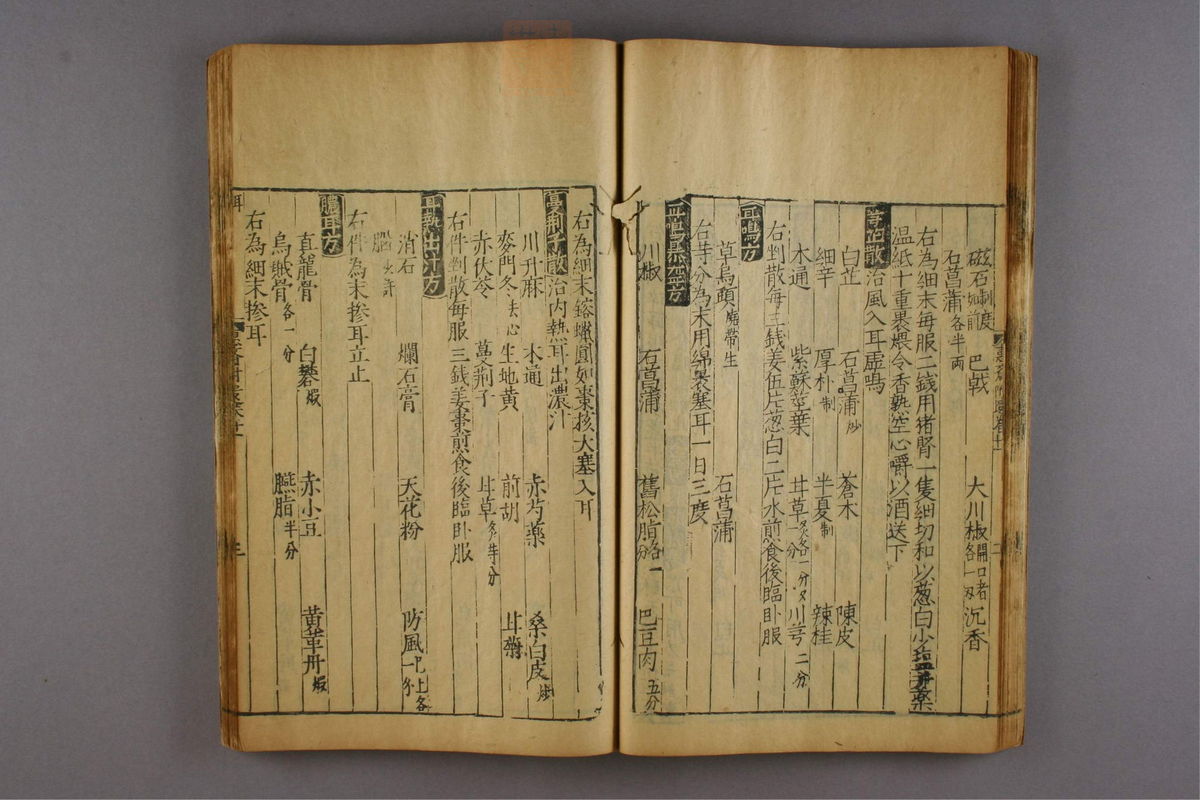 磁石制度如前 巴戟 大川椒開口者各一兩 沉香
石菖蒲各半兩
右為細末每服二錢用猪腎一隻細切和以葱白小
温紙十重裹煨令香熟空心嚼以酒送下
芎芷散治風入耳虛鳴
白芷 石菖蒲炒 蒼木 陳皮
細辛 厚朴制 半夏制 辣桂
木通 紫蘇莖葉 甘草炙各一分 川芎二分
右剉散每三錢姜伍片葱白二片水煎食後臨卧服
耳鳴方
草烏頭燒帶生 石菖蒲
右等分為末用綿裹塞耳一日三度
耳鳴暴聾方
川椒 石菖蒲 舊松脂各一分 巴豆肉五分
右為細末鎔蠟圓如棗核大塞入耳
蔓荆子散治內熱耳出濃汁
川升麻 木通 赤芍藥 桑白皮炒
麥門冬去心 生地黄 前胡 甘菊
赤伏苓 蔓荆子 甘草炙等分
右件剉散每服三錢姜棗煎食後臨卧服
耳熱出汁方
消石 爛石膏 天花粉 防風已上各一分
腦少許
右件為末摻耳立止
膿耳方
真龍骨 白礬煅 赤小豆 黄丹煅
烏賊骨各一分 臙脂半分
右為細末摻耳
耳